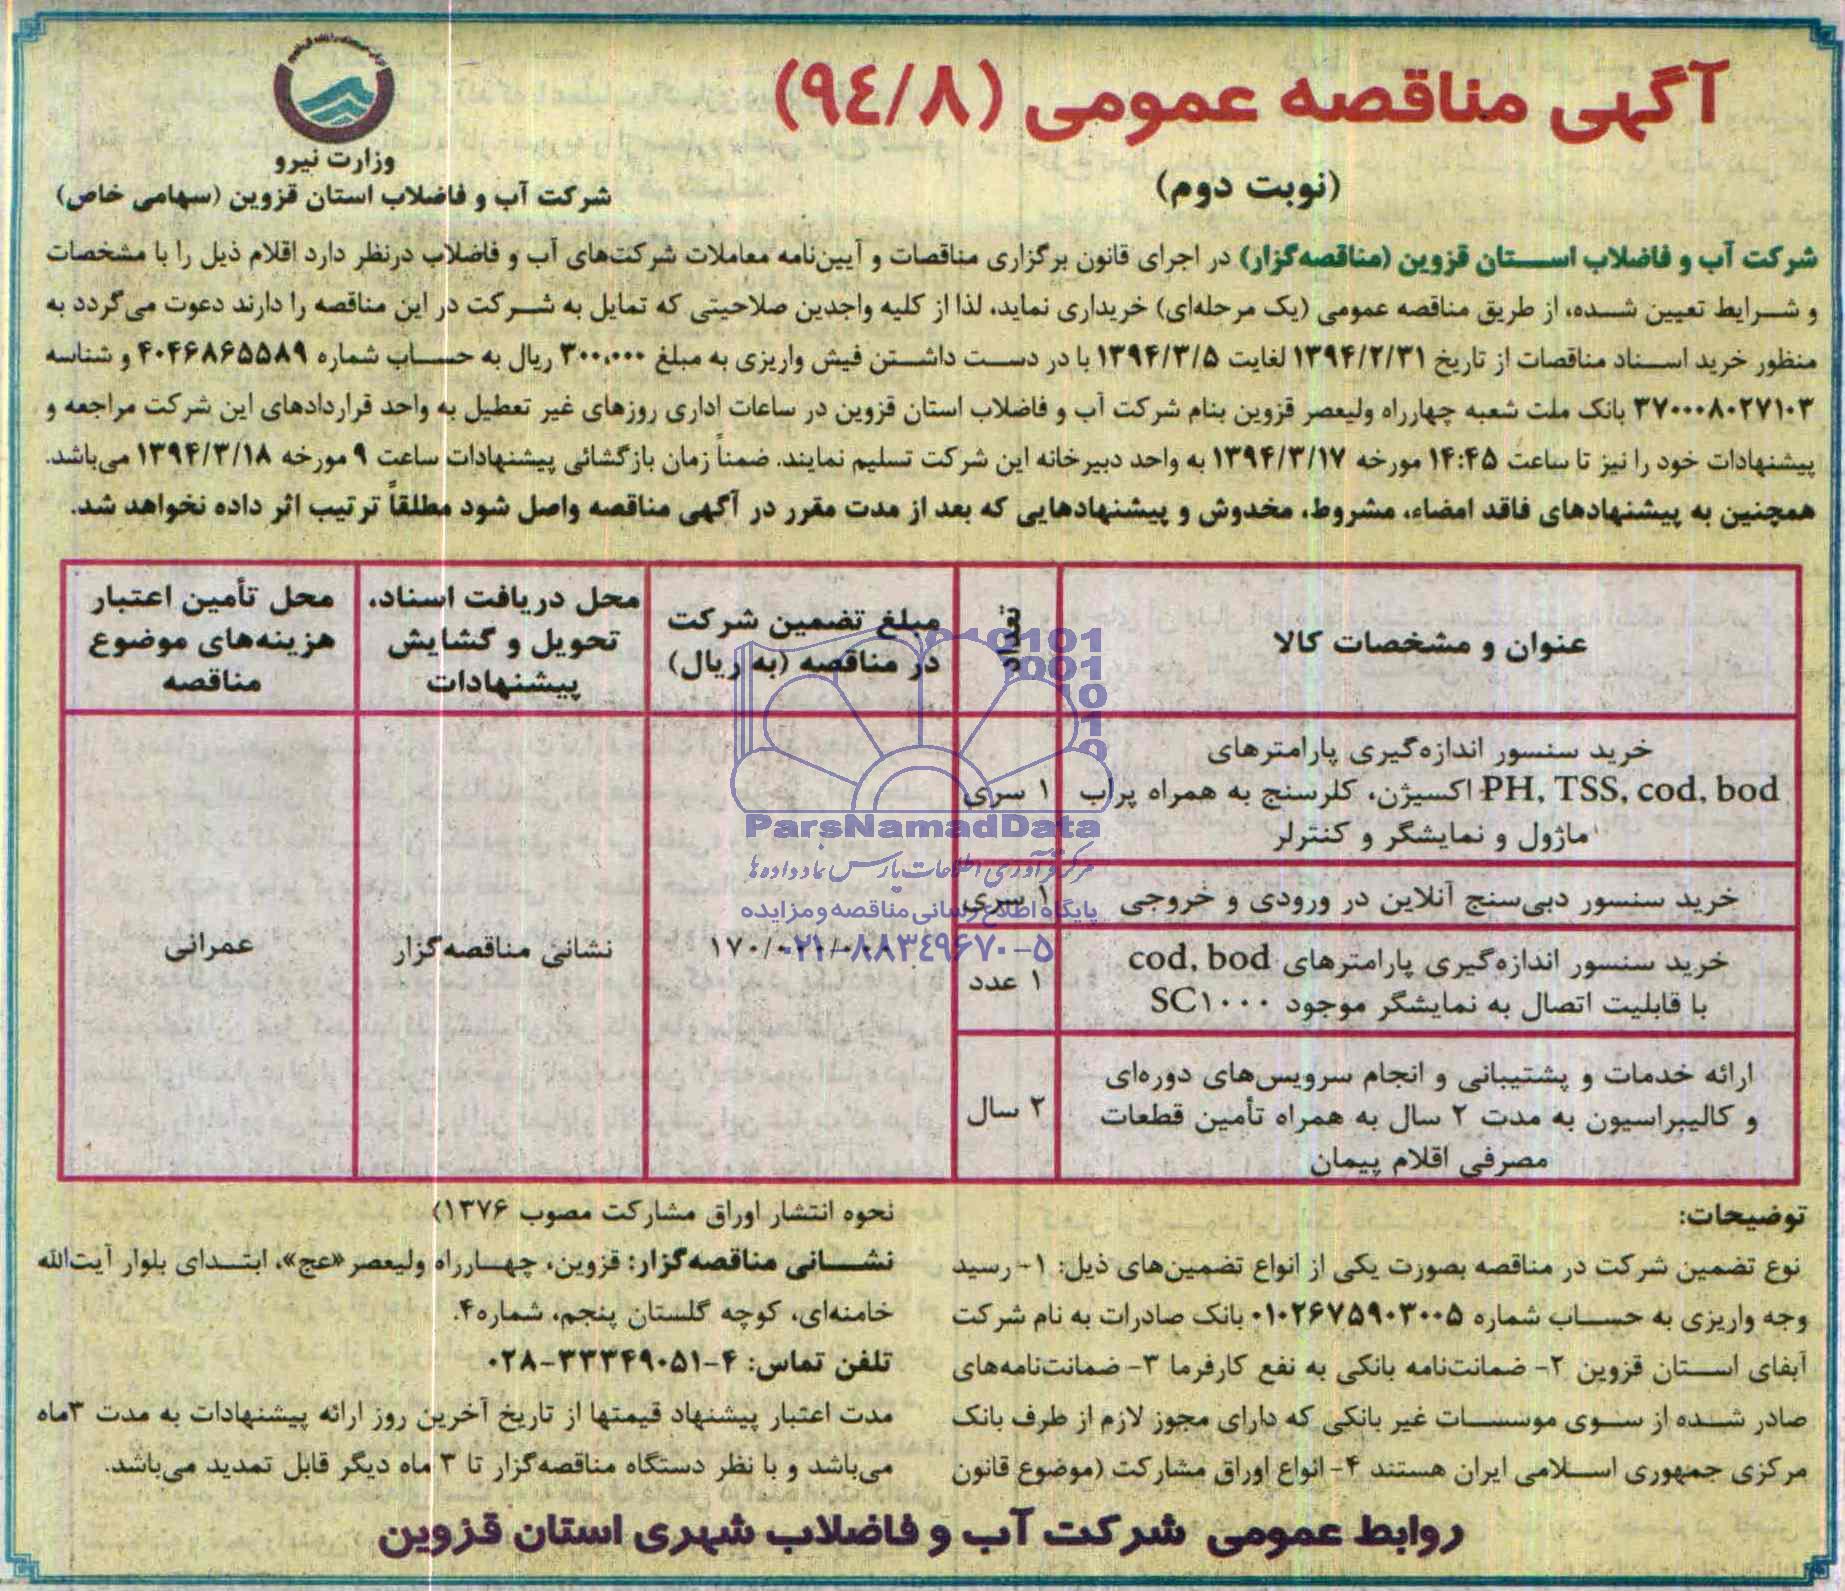 آگهی مناقصه عمومی (۹۴/۸)
(نوبت دوم)
وزارت نیرو
شرکت آب و فاضلاب استان قزوین (سهامی خاص)
شرکت آب و فاضلاب استان قزوین (مناقصه‌گزار) در اجرای قانون برگزاری مناقصات و آیین‌نامه معاملات شرکت‌های آب و فاضلاب درنظر دارد اقلام ذیل را با مشخصات
و شرایط تعیین شده، از طریق مناقصه عمومی (یک مرحله‌ای) خریداری نماید، لذا از کلیه واجدین صلاحیتی که تمایل به شرکت در این مناقصه را دارند دعوت می‌گردد به
منظور خرید اسناد مناقصات از تاریخ ۱۳۹۴/۲/۳۱ لغایت ۱۳۹۴/۳/۵ با در دست داشتن فیش واریزی به مبلغ ۳۰۰,۰۰۰ ریال به حساب شماره ۴۰۴۶۸۶۵۵۸۹ و شناسه
۳۷۰۰۰۸۰۲۷۱۰۳ بانک ملت شعبه چهارراه ولیعصر قزوین بنام شرکت آب و فاضلاب استان قزوین در ساعات اداری روزهای غیر تعطیل به واحد قراردادهای این شرکت مراجعه و
پیشنهادات خود را نیز تا ساعت ۱۴:۴۵ مورخه ۱۳۹۴/۳/۱۷ به واحد دبیرخانه این شرکت تسلیم نمایند. ضمناً زمان بازگشائی پیشنهادات ساعت ۹ مورخه ۱۳۹۴/۳/۱۸ می‌باشد.
همچنین به پیشنهادهای فاقد امضاء، مشروط، مخدوش و پیشنهادهایی که بعد از مدت مقرر در آگهی مناقصه واصل شود مطلقاً ترتیب اثر داده نخواهد شد.
عنوان و مشخصات کالا
تعداد
مبلغ تضمین شرکت
در مناقصه (به ریال)
محل دریافت اسناد،
تحویل و گشایش
پیشنهادات
محل تأمین اعتبار
هزینه‌های موضوع
مناقصه
خرید سنسور اندازه‌گیری پارامترهای
PH, TSS, cod, bod اکسیژن، کلرسنج به همراه پراب
ماژول و نمایشگر و کنترلر
۱ سری
خرید سنسور دبی‌سنج آنلاین در ورودی و خروجی
۱ سری
خرید سنسور اندازه‌گیری پارامترهای cod, bod
با قابلیت اتصال به نمایشگر موجود SC۱۰۰۰
۱ عدد
ارائه خدمات و پشتیبانی و انجام سرویس‌های دوره‌ای
و کالیبراسیون به مدت ۲ سال به همراه تأمین قطعات
مصرفی اقلام پیمان
۲ سال
۱۷۰/۰۰۰/۰۰۰
نشانی مناقصه‌گزار
عمرانی
ParsNamadData
مرکز فرآوری اطلاعات پارس نماد داده‌ها
پایگاه اطلاع رسانی مناقصه و مزایده
۰۲۱-۸۸۳۴۹۶۷۰-۵
توضیحات:
نوع تضمین شرکت در مناقصه بصورت یکی از انواع تضمین‌های ذیل: ۱- رسید
وجه واریزی به حساب شماره ۰۱۰۲۶۷۵۹۰۳۰۰۵ بانک صادرات به نام شرکت
آبفای استان قزوین ۲- ضمانت‌نامه بانکی به نفع کارفرما ۳- ضمانت‌نامه‌های
صادر شده از سوی موسسات غیر بانکی که دارای مجوز لازم از طرف بانک
مرکزی جمهوری اسلامی ایران هستند ۴- انواع اوراق مشارکت (موضوع قانون
نحوه انتشار اوراق مشارکت مصوب ۱۳۷۶)
نشانی مناقصه‌گزار: قزوین، چهارراه ولیعصر «عج»، ابتدای بلوار آیت‌الله
خامنه‌ای، کوچه گلستان پنجم، شماره۴.
تلفن تماس: ۴-۳۳۳۴۹۰۵۱-۰۲۸
مدت اعتبار پیشنهاد قیمتها از تاریخ آخرین روز ارائه پیشنهادات به مدت ۳ماه
می‌باشد و با نظر دستگاه مناقصه‌گزار تا ۳ ماه دیگر قابل تمدید می‌باشد.
روابط عمومی شرکت آب و فاضلاب شهری استان قزوین